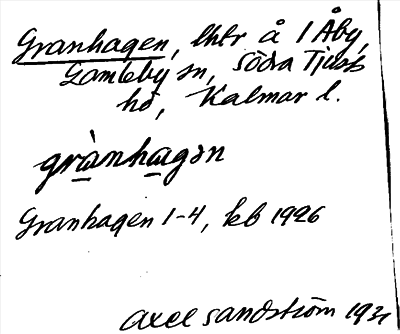 Granhagen, lhtr å 1 Åby,
Gamleby sn, Södra Tjusts
hd, Kalmar l.
grànhagən
Granhagen 1-4, kb 1926
Axel Sandström